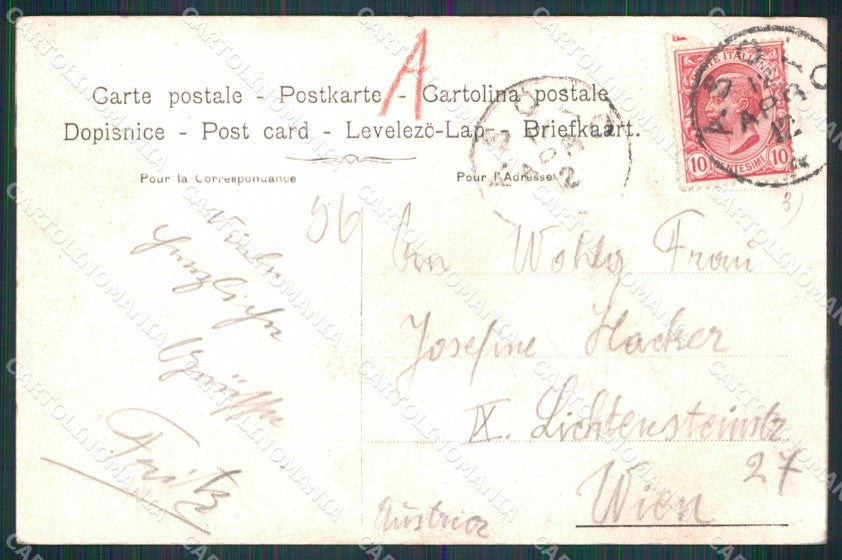 A
Carte postale - Postkarte - Cartolina postale
Dopisnice - Post card - Levelezö-Lap - Briefkaart.
Pour la Correspondance
Pour l'Adresse
POSTE ITALIANE
10 CENTESIMI 10
ASOLO
ASOLO
56
Viele
herzliche
Grüsse
Fritz
An Wohlg Frau
Josefine Hacker
IX. Lichtensteinstr
27
Wien
Austria
CARTOLINOMANIA